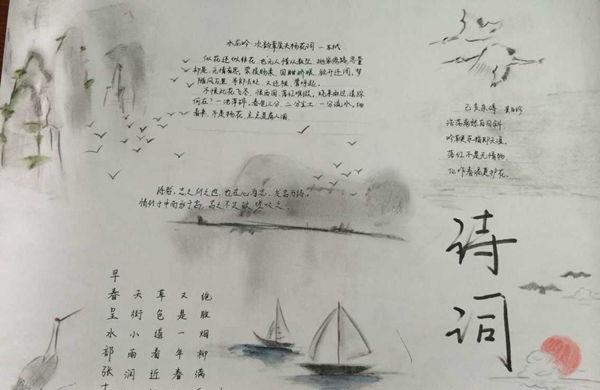 水龙吟·次韵章质夫杨花词 —苏轼
似花还似非花 也无人惜从教坠 抛家傍路 思量
却是 无情有思 萦损柔肠 困酣娇眼 欲开还闭 梦
随风万里 寻郎去处 又还被 莺呼起
不恨此花飞尽 恨西园 落红难缀 晓来雨过 遗踪
何在?一池萍碎 春色三分 二分尘土 一分流水 细
看来 不是杨花 点点是离人泪
己亥杂诗 龚自珍
浩荡离愁白日斜
吟鞭东指即天涯
落红不是无情物
化作春泥更护花
诗者,志之所之也,在心为志,发言为诗,
情动于中而形于言,言之不足故嗟叹之
诗词
早春呈水部张十
天街小雨润
草色遥看近
又是一年春
绝胜烟柳满